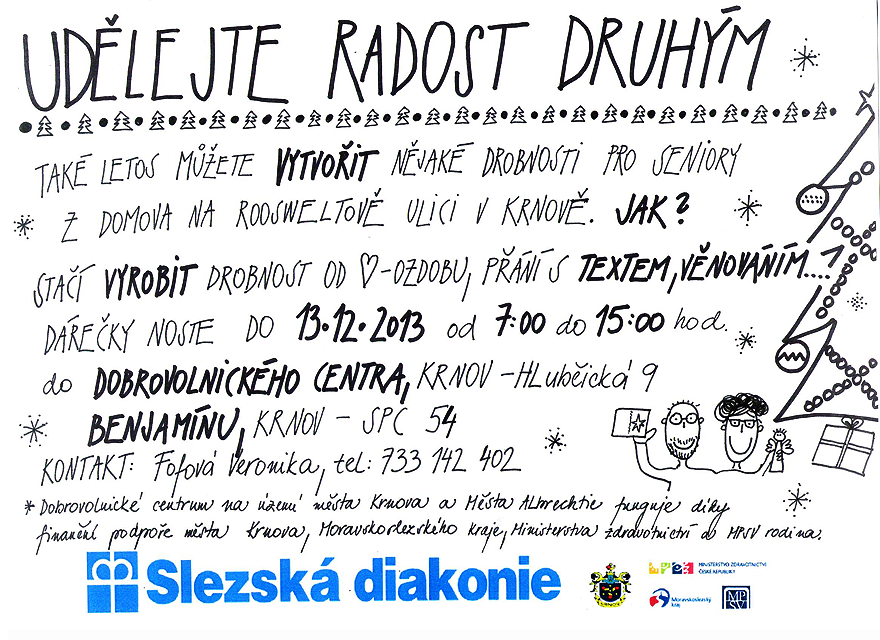 UDĚLEJTE RADOST DRUHÝM
TAKÉ LETOS MŮŽETE VYTVOŘIT NĚJAKÉ DROBNOSTI PRO SENIORY
Z DOMOVA NA ROOSWELTOVĚ ULICI V KRNOVĚ. JAK?
STAČÍ VYROBIT DROBNOST OD ♡-OZDOBU, PŘÁNÍ S TEXTEM, VĚNOVÁNÍM....!
DÁREČKY NOSTE DO 13.12.2013 od 7:00 do 15:00 hod.
do DOBROVOLNICKÉHO CENTRA, KRNOV - HLubčická 9
BENJAMÍNU, KRNOV - SPC 54
KONTAKT: Fofová Veronika, tel: 733 142 402
* Dobrovolnické centrum na území města Krnova a Města ALbrechtie funguje díky
finanční podpoře města Krnova, Moravskoslezského Kraje, Ministerstva zdravotnictví a MPSV rodina.
Slezská diakonie
MINISTERSTVO ZDRAVOTNICTVÍ
ČESKÉ REPUBLIKY
Moravskoslezský
kraj
MP
SV